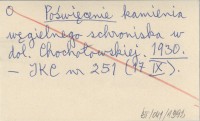 Poświęcenie kamienia
węgielnego schroniska w
dol. Chochołowskiej. 1930.
– IKC nr 251 (17 IX).